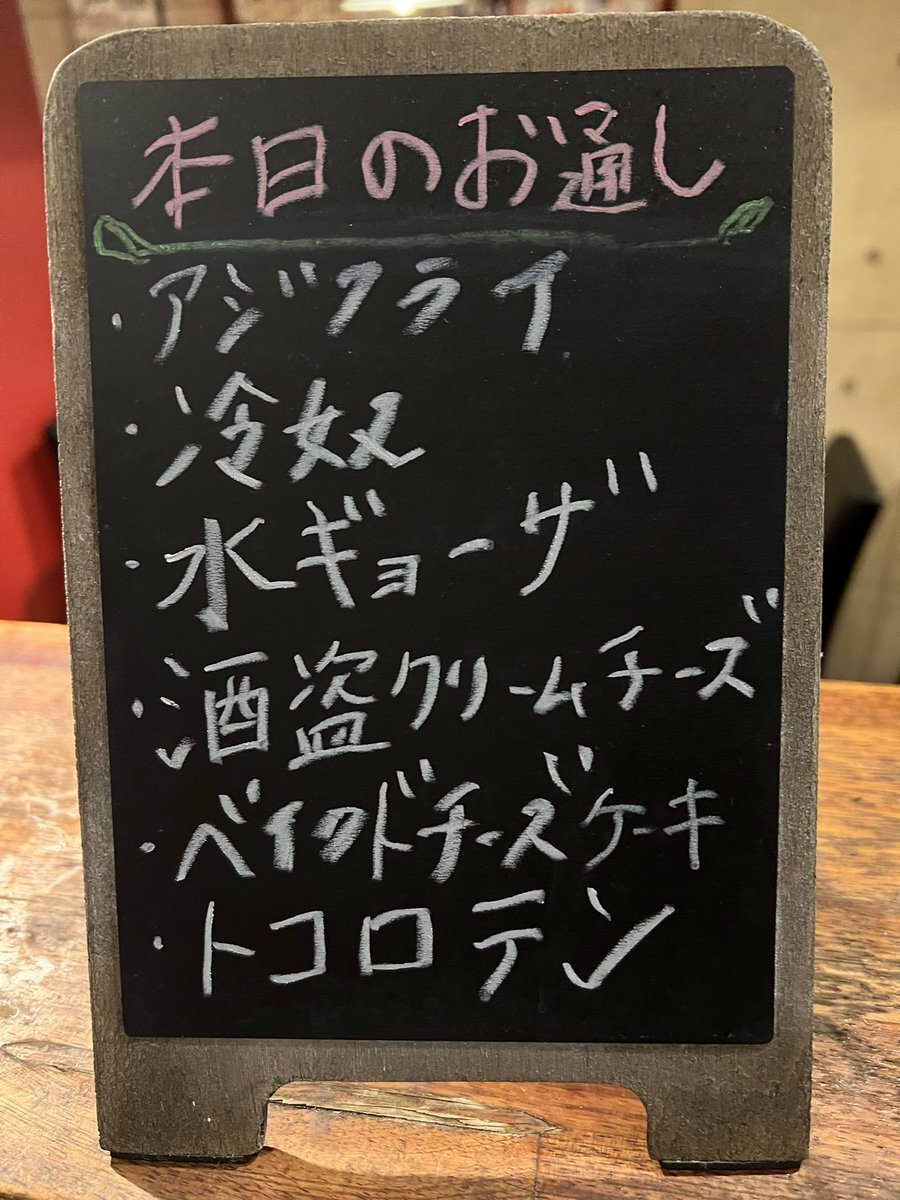 本日のお通し
・アジフライ
・冷奴
・水ギョーザ
・酒盗クリームチーズ
・ベイクドチーズケーキ
・トコロテン